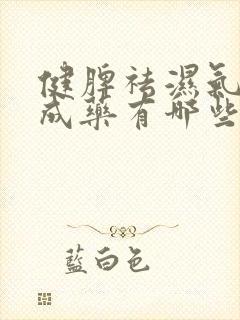 健脾祛濕氣
成藥有哪些
藍白色